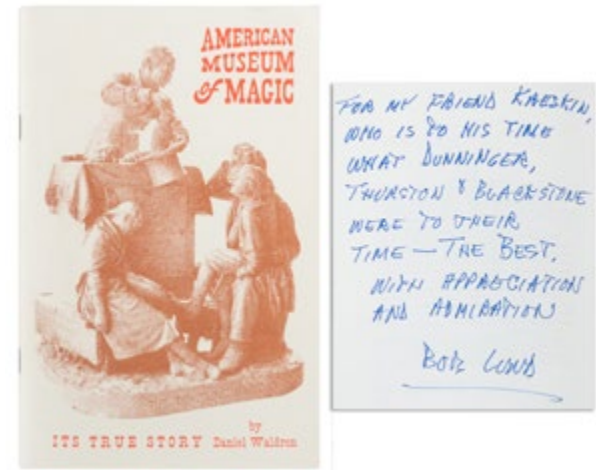 AMERICAN
MUSEUM
of MAGIC
ITS TRUE STORY by Daniel Waldron
FOR MY FRIEND KRESKIN,
WHO IS TO HIS TIME
WHAT DUNNINGER,
THURSTON & BLACKSTONE
WERE TO THEIR
TIME — THE BEST.
WITH APPRECIATION
AND ADMIRATION
BOB LUND